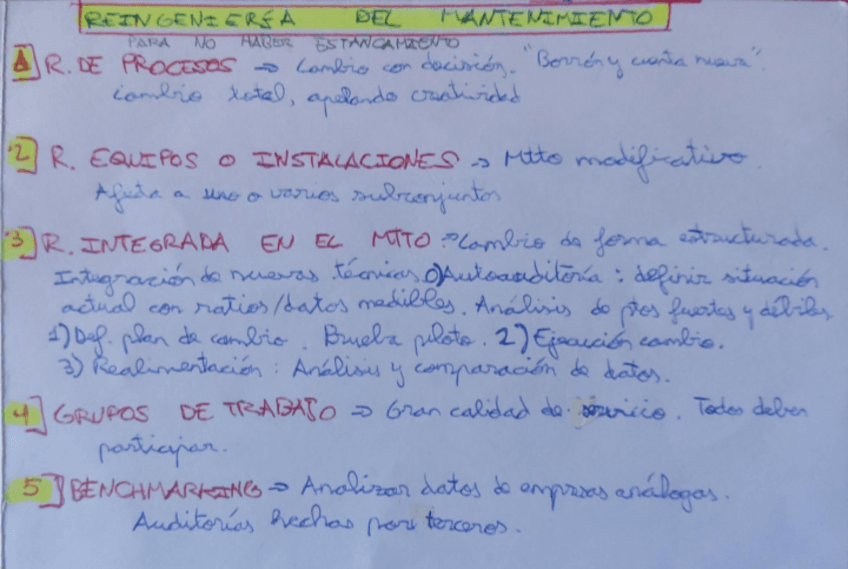 REINGENIERÍA DEL MANTENIMIENTO
PARA NO HABER ESTANCAMIENTO
1] R. DE PROCESOS => Cambio con decisión. "Borrón y cuenta nueva".
Cambio total, apelando creatividad
2] R. EQUIPOS O INSTALACIONES → Mtto modificativo.
Afecta a uno o varios subconjuntos
3] R. INTEGRADA EN EL MTTO => Cambio de forma estructurada.
Integración de nuevas técnicas 0) Autoauditoría : definir situación
actual con ratios/datos medibles. Análisis de ptos fuertes y débiles
1) Def. plan de cambio. Prueba piloto. 2) Ejecución cambio.
3) Realimentación : Análisis y comparación de datos.
4] GRUPOS DE TRABAJO => Gran calidad de servicio. Todos deben
participar.
5] BENCHMARKING => Analizar datos de empresas análogas.
Auditorías hechas por terceros.